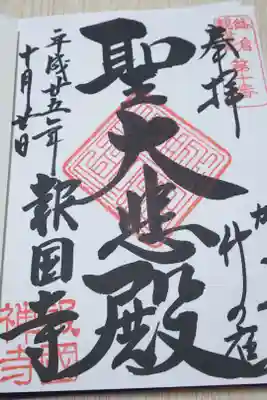 奉拝
鎌倉第十番
竹の庭
聖大悲殿
平成廿五年
十月廿日
報国寺
報國
禅寺